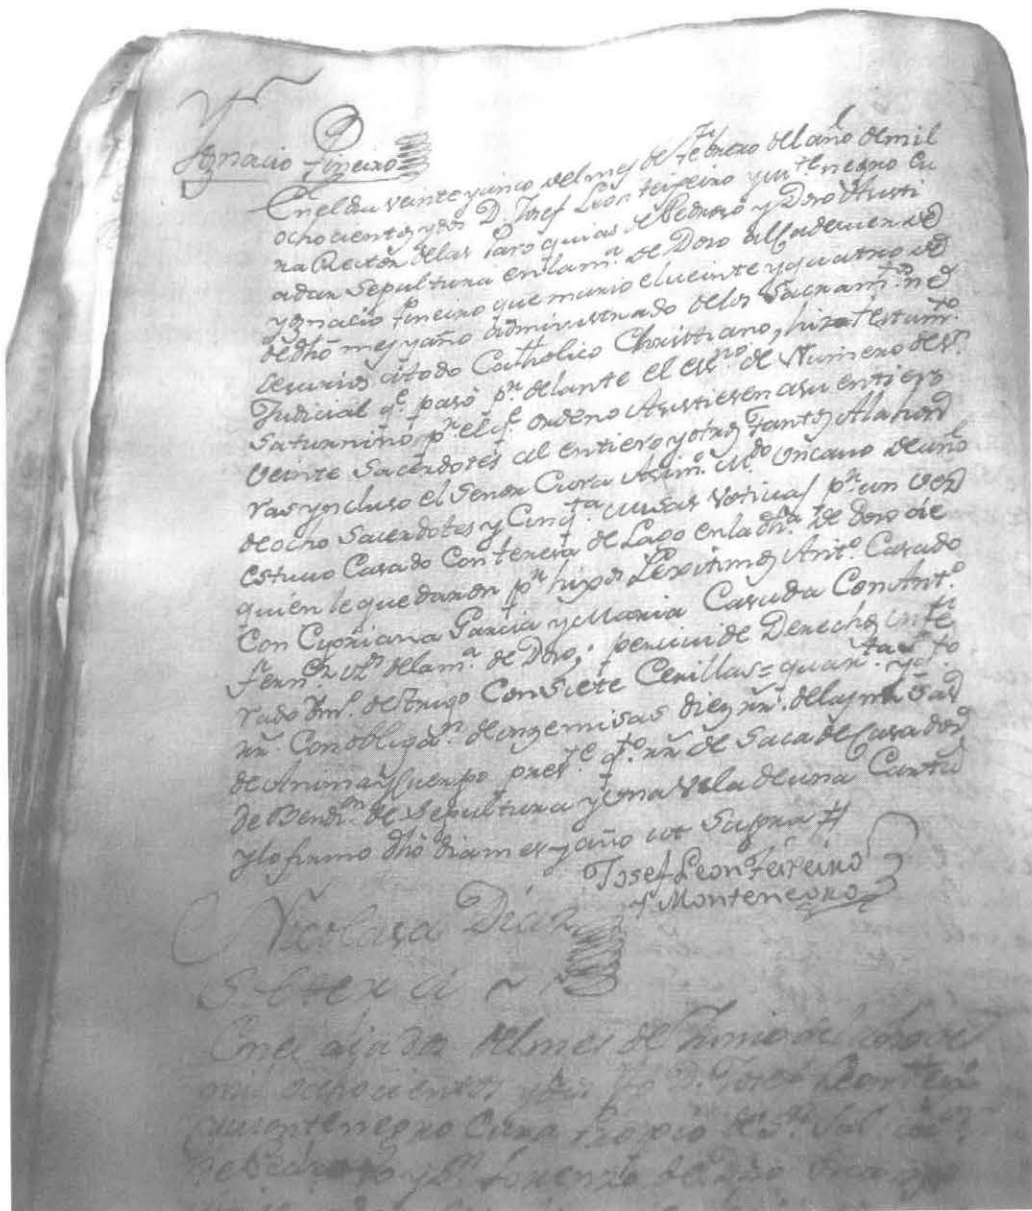 Ygnacio Pineiro
En el dia veinte y cinco del mes de Febrero del año de mil
ochocientos y dos D. Josef Leon Teixeiro y Montenegro Cu
ra Rector de las Parroquias de Pedroso y Doso Asisti
a dar Sepultura en la m.ª de Doso al Cadever de
Ygnacio Pineiro que murio el veinte y quatro de
dho mes y año administrado de los Sacram.tos ne
cesarios a todo Catholico Christiano, hizo testam.to
Judicial q.e pasó p.r delante el ess.no de Numero de S.n
Saturnino, p.r el q.e ordeno Asistiesen a su entierro
veinte Sacerdotes al entierro y otros tantos A la hon
ras yncluso el Senor Cura
de ocho Sacerdotes y Cinq.ta misas votivas p.r un vez
estuvo Casado Con Teresa de Lago en la dha de Doso de
quien le quedaron p.r hijos Lexitimos Ant.o Casado
Con Cypriana Garcia y Maria Casada Con Ant.o
Fern.ez vz.os de la m.ª de Doso; percivi de Derechos
rado de trigo Con Siete Cerillas = quar.ta y q.to
rr.s Con obligaz.n de onze misas diez rr.s de la
de Anima y Cuerpo pres.te q.to rr.s de Saca de
de Bendi.on de Sepultura y Una Vela de una Carta
y lo firmo dho dia mes y año ut Supra #
Josef Leon Teixeiro
y Montenegro
Nicolasa Diaz
Soltera
En el dia dos del mes de Junio del año de
mil ochocientos y dos Yo D. Josef Leon Teix
Montenegro Cura Propio de S.n Sal
de Pedroso y S.n Lorenzo de Doso